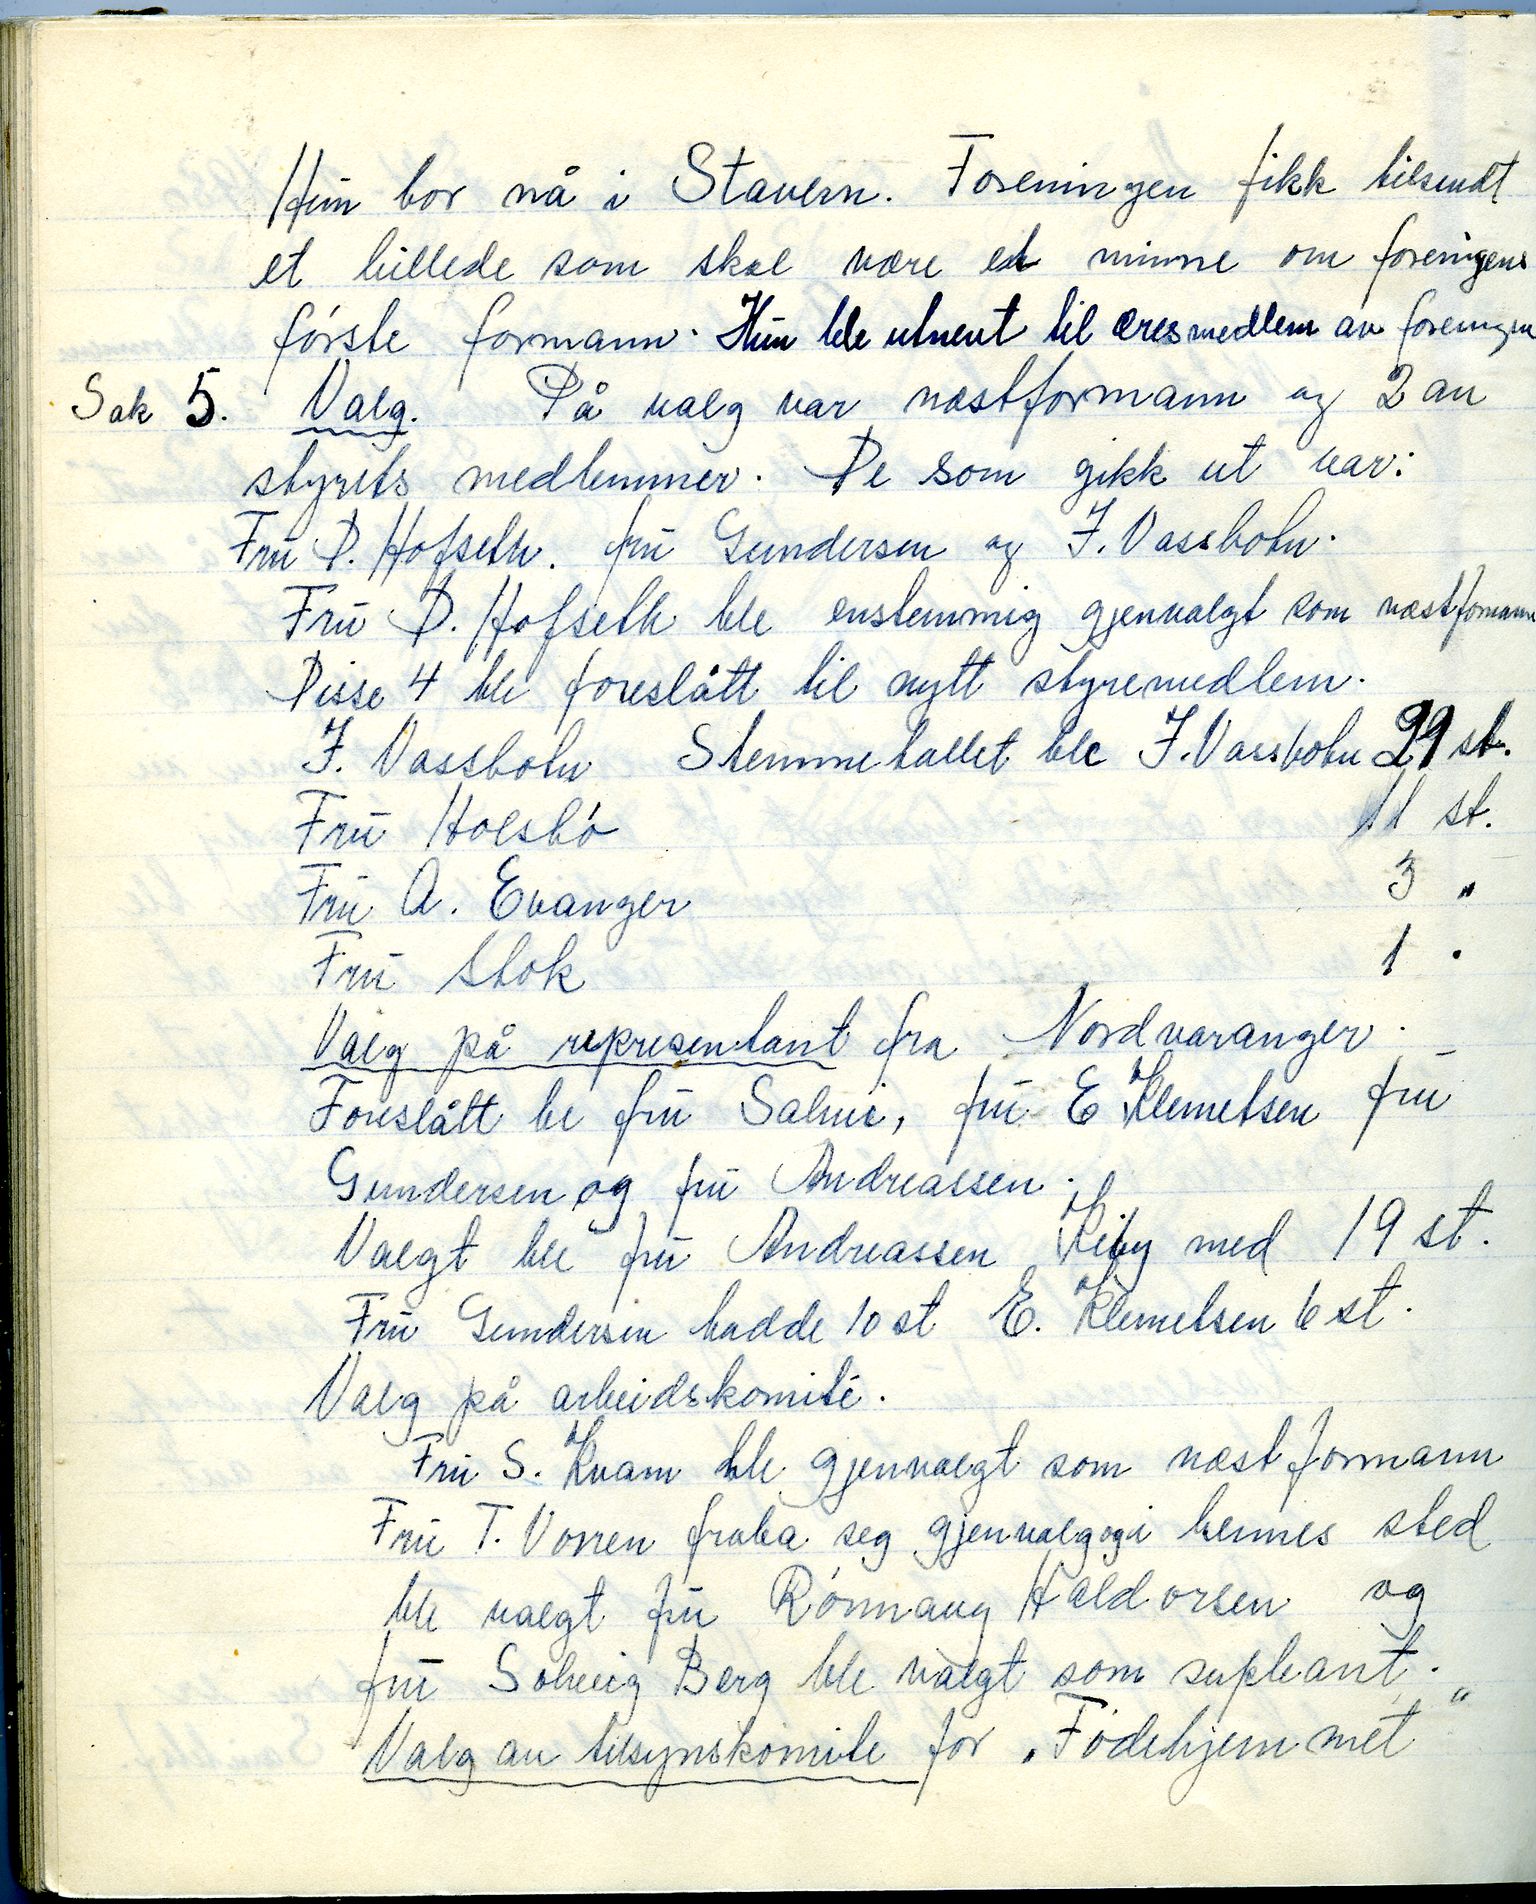 Hun bor nå i Stavern. Foreningen fikk tilsendt
et billede som skal være et minne om foreningens
første formann. Hun ble utnevnt til æresmedlem av foreningen
Sak 5. Valg. På valg var næstformann og 2 av
styrets medlemmer. De som gikk ut var:
Fru D. Hofseth. fru Gundersen og J. Vassbotn.
Fru D. Hofseth ble enstemmig gjenvalgt som næstformann
Disse 4 ble foreslått til nytt styremedlem.
J. Vassbotn Stemmetallet ble J. Vassbotn 29 st.
Fru Holsbö 11 st.
Fru A. Evanger 3 "
Fru Stok 1 "
Valg på representant fra Nordvaranger.
Foreslått ble fru Salmi, fru E Klemetsen fru
Gundersen og fru Andreassen.
Valgt ble fru Andreassen Kiby med 19 st.
Fru Gundersen hadde 10 st E. Klemetsen 6 st.
Valg på arbeidskomité.
Fru S. Kvam ble gjenvalgt som næstformann
Fru T. Vorren fraba seg gjenvalg og i hennes sted
ble valgt fru Rönnaug Haldorsen og
fru Solveig Berg ble valgt som supleant.
Valg av tilsynskomite for "Födehjemmet"